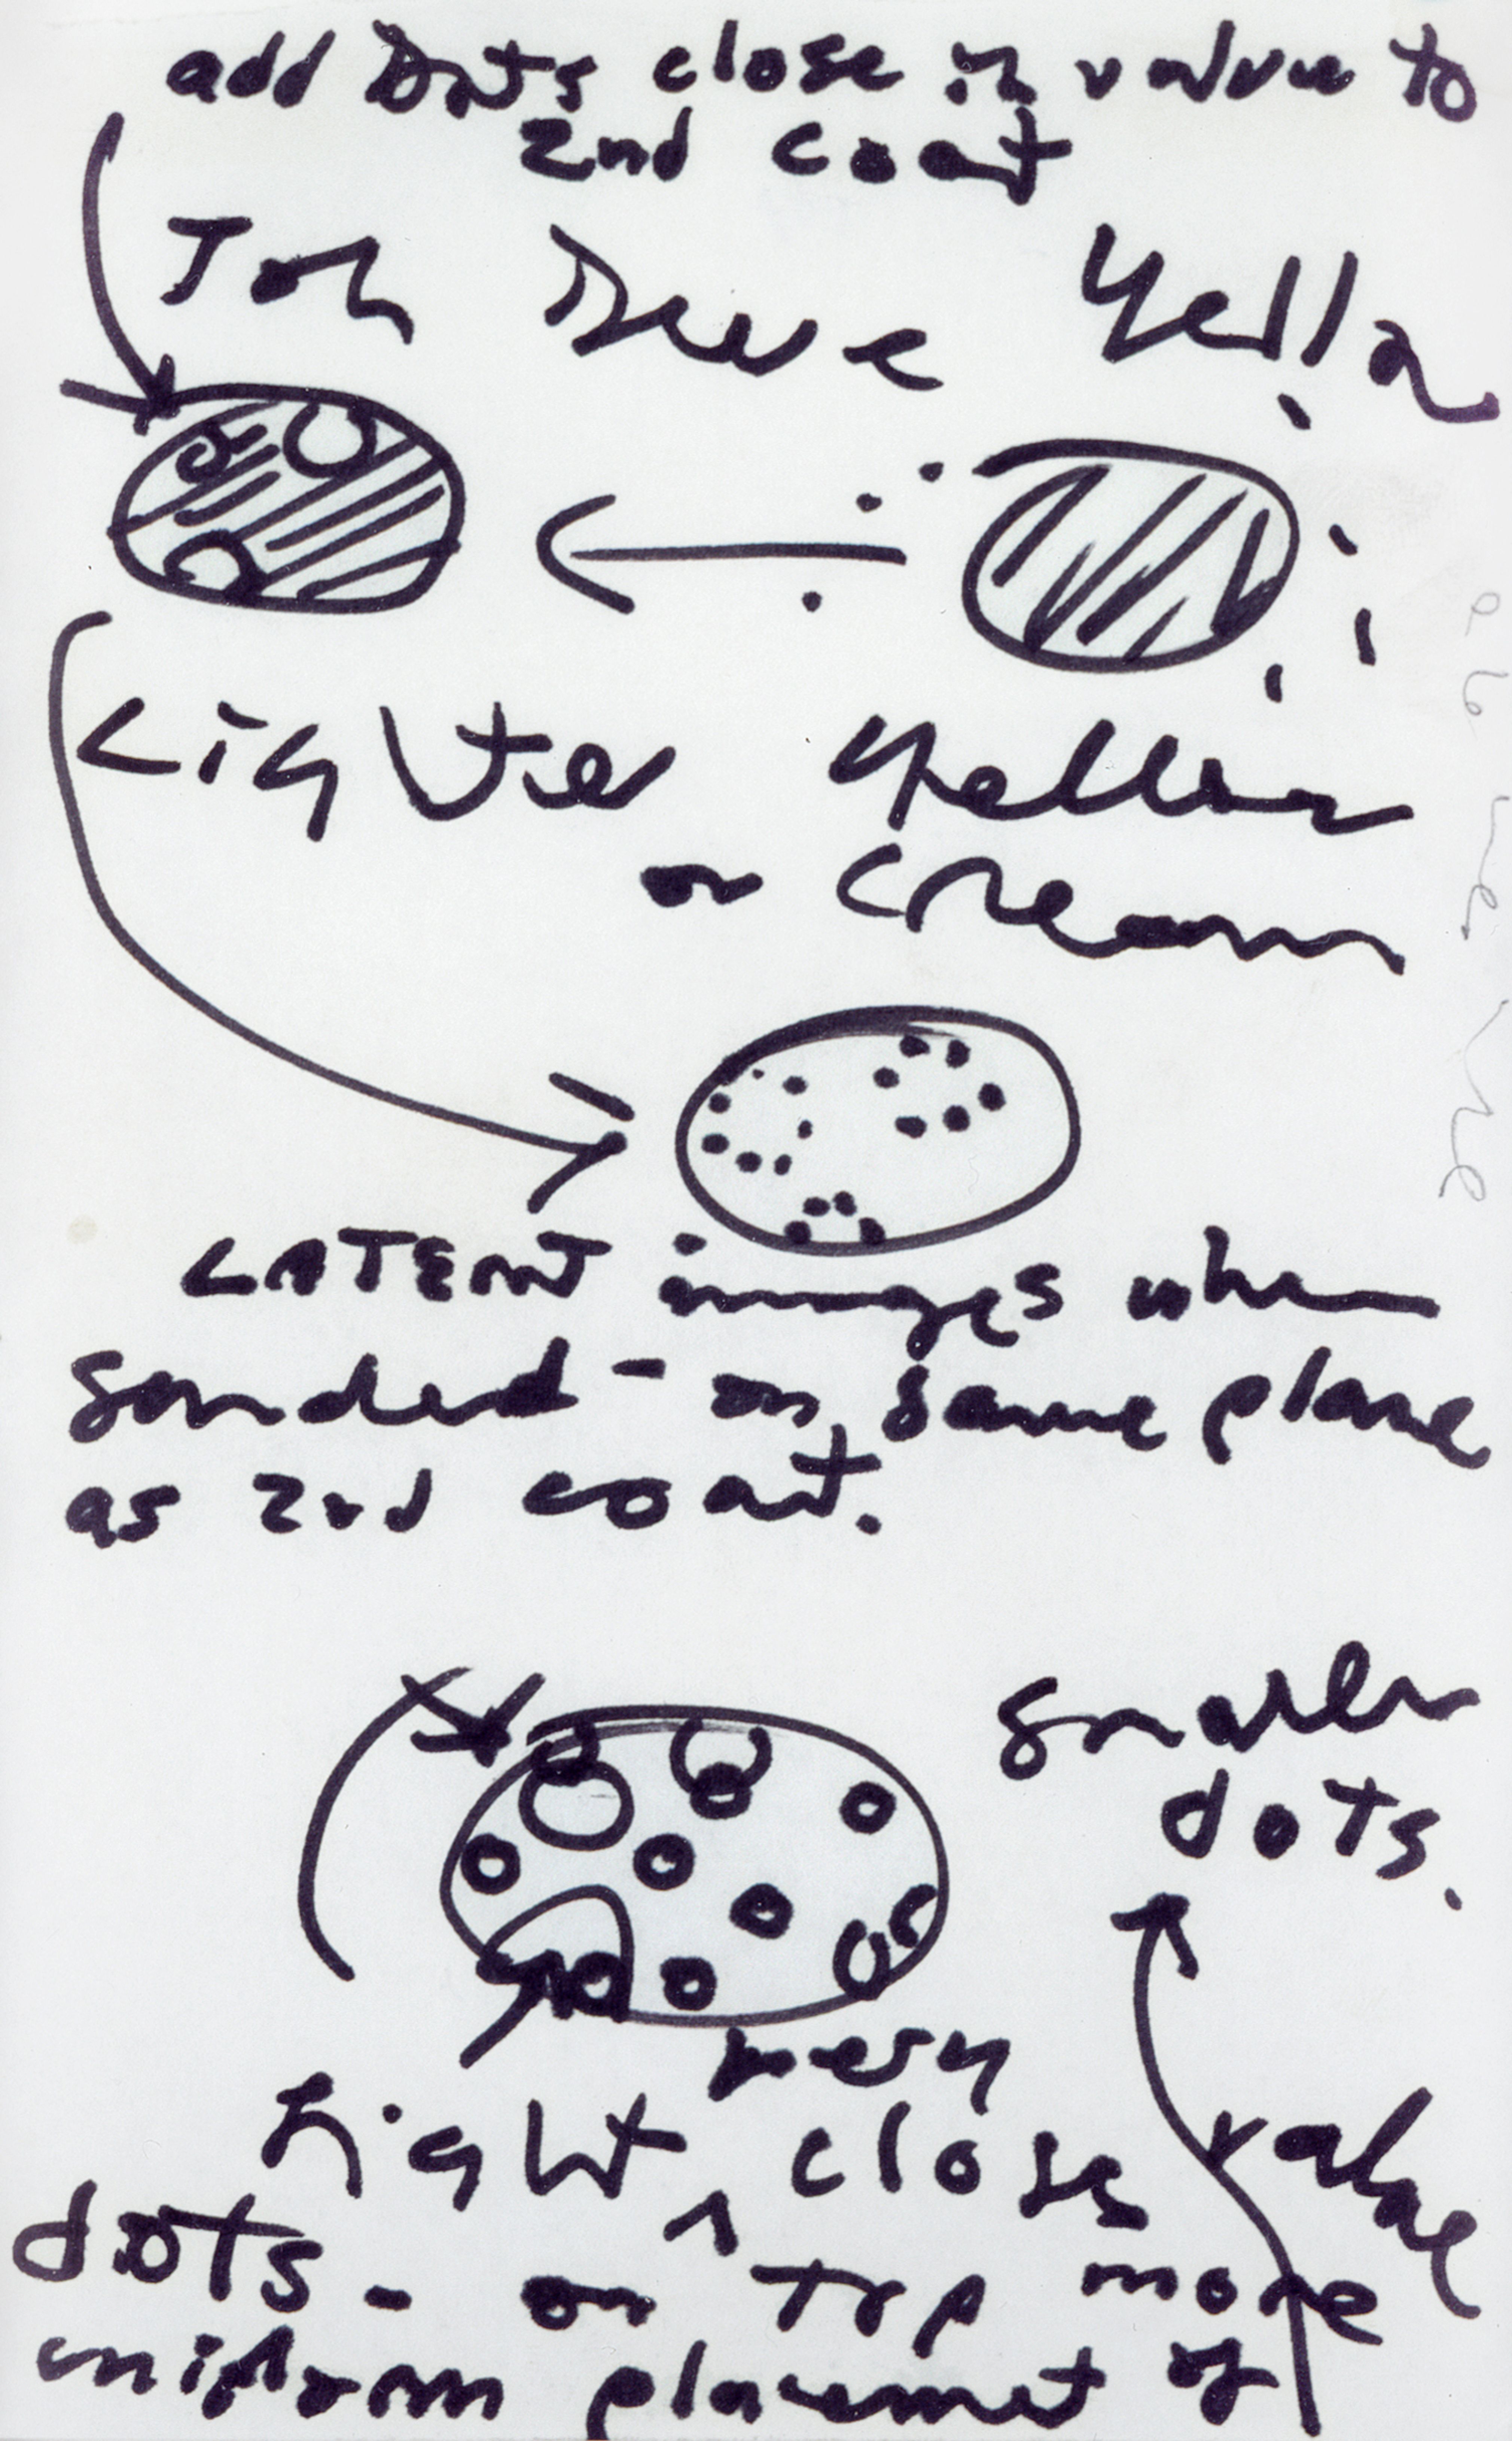 add Dots close in value to
2nd coat
Tan
Yella
Lighter Yellow
or Cream
LATENT images when
sanded - on same plane
as 2nd coat.
smaller
dots.
very
Light ^ close value
dots - on top more
uniform placement of